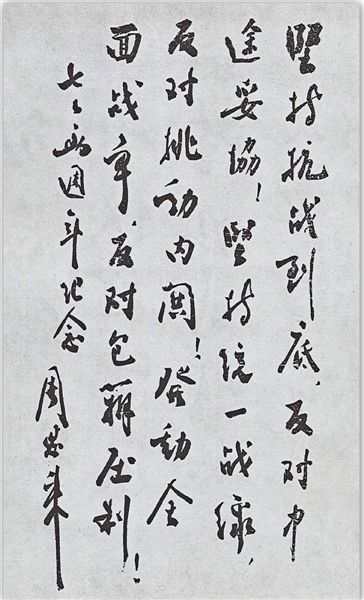 堅持抗战到底,反对中
途妥協!堅持统一战線,
反对挑动内閧!發動全
面战争,反对包辦压制!
七七两週年纪念
周恩来